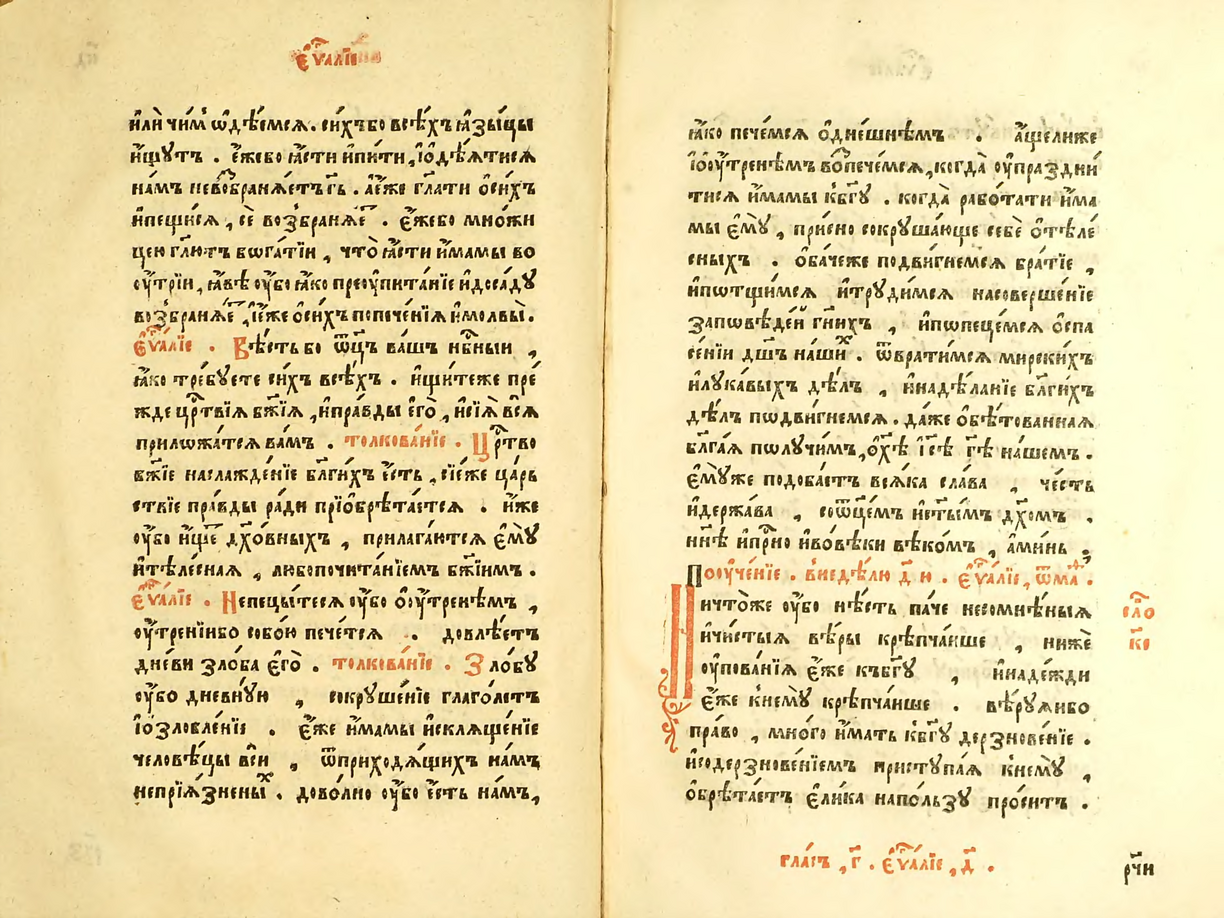 є҆ѵⷢ҇алїе
и҆лѝ чи́мъ ѡ҆дѣ́ємсѧ. си́хъ бо всѣ́хъ ꙗ҆зы́цы
и҆́щꙋтъ . є҆́жебо ꙗ҆́сти и҆пи́ти, і҆ѡ҆дѣ́ѧтисѧ
на́мъ невоз̾бранѧ́етъ гь҃ . а҆є҆́же гл҃ати ѡ҆си́хъ
и҆пещи́сѧ , сѐ воз̾бранѧ́еⷮ . є҆́жебо мно́жи
цею гл҃ютъ бѡга́тїи , что̀ ꙗ҆́сти и҆́мамы во
ᲂу҆́трїи , ꙗ҆́вѣ ᲂу҆́бо ꙗ҆́ко преѡу҆пита́нїе и҆доса́дꙋ
воз̾бранѧ́еⷮ , і҆є҆́же ѡ҆си́хъ попече́нїѧ и҆молвы̀.
є҆ѵⷢ҇а́лїе . Вѣ́сть бо ѿц҃ъ ва́шъ нб҃ныи ,
ꙗ҆́ко тре́бꙋете си́хъ всѣ́хъ . и҆щи́теже пре́
жде црⷭ҇твїѧ бж҃їѧ , и҆пра́вды є҆гѡ̀ , и҆сїѧ̑ всѧ̑
прилѡжа́тсѧ ва́мъ . толкова́нїе . Црⷭ҇тво
бж҃їе наслажде́нїе бл҃ги́хъ є҆́сть , сїе́же ца́рь
ствїе пра́вды ра́ди прїѡбрѣта́етсѧ . и҆́же
ᲂу҆́бо и҆́щеⷮ дх҃о́вныхъ , прилага́ютсѧ є҆мꙋ̀
и҆тѣле́снаѧ , любопочита́нїемъ бж҃їимъ .
є҆ѵⷢ҇а́лїе . Непецы́тесѧ ᲂу҆́бо ѡ҆ᲂу҆́тренѣмъ ,
ᲂу҆́тренїибо собо́ю пече́тсѧ . довлѣ́етъ
дне́ви зло́ба є҆гѡ̀ . толкова́нїе . Зло́бꙋ
ᲂу҆́бо дневнꙋ́ю , сокрꙋше́нїе глаго́летъ
і҆ѡзловле́нїе . є҆́же и҆́мамы и҆склѧще́нїе
человѣ́цы всѝ , ѿприходѧ́щихъ на́мъ
непрїѧ́зненыⷯ . дово́лно ᲂу҆́бо є҆́сть на́мъ,
ꙗ҆́ко пече́мсѧ ѡ҆дне́шнѣмъ . а҆́щелиже
і҆ѡᲂу҆́тренѣмъ воз̾пече́мсѧ , когда̀ ᲂу҆праздни́
тисѧ и҆́мамы к̾бг҃ꙋ . когда̀ рабо́тати и҆́ма
мы є҆мꙋ̀ , при́сно сокрꙋша́юще себѐ ѡ҆тѣле́
сныхъ . ѡ҆ба́чеже подви́гнемсѧ бра́тїе ,
и҆пѡтщи́мсѧ и҆трꙋди́мсѧ насоверше́нїе
за́пѡвѣде́й гн҃ихъ , и҆пѡпеце́мсѧ ѡ҆спа
се́нїи дш҃ъ на́шиⷯ . ѿврати́мсѧ мирски́хъ
и҆лꙋка́выхъ дѣ́лъ , и҆надѣ́ланїе бл҃ги́хъ
дѣ́лъ пѡдви́гнемсѧ . да́же ѡ҆бѣтова́ннаѧ
бл҃га́ѧ пѡлꙋчи́мъ, ѡ҆хⷭ҇ѣ і҆с҃ѣ гдⷭ҇ѣ на́шемъ .
є҆мꙋ́же подоба́етъ всѧ́ка сла́ва , че́сть
и҆держа́ва , соѿц҃е́мъ и҆ст҃ы́мъ дх҃омъ ,
нн҃ѣ и҆при́сно и҆вовѣ́ки вѣко́мъ , а҆ми́нь .
Поᲂуче́нїе . в̾недѣ́лю д҃ ю . є҆ѵⷢ҇а́лїе, ѿмаⷴ҇ .
Ничто́же ᲂу҆́бо нѣ́сть па́че несомнѣ́ныѧ
и҆чи́стыѧ вѣ́ры крѣпча́ише , ни́же
ᲂу҆пова́нїѧ є҆́же къбг҃ꙋ , и҆наде́жди
є҆́же к̾немꙋ̀ крѣпча́ише . вѣ́рꙋѧибо
пра́во , мно́го и҆́мать к̾бг҃ꙋ дерзнове́нїе .
и҆содерзнове́нїемъ пристꙋпа́ѧ к̾немꙋ̀ ,
ѡ҆брѣта́етъ є҆ли́ка напо́льзꙋ про́ситъ .
сло́
к҃ѳ
гла́съ , г҃ . є҆ѵⷢ҇а́лїе , д҃ .
рч҃и